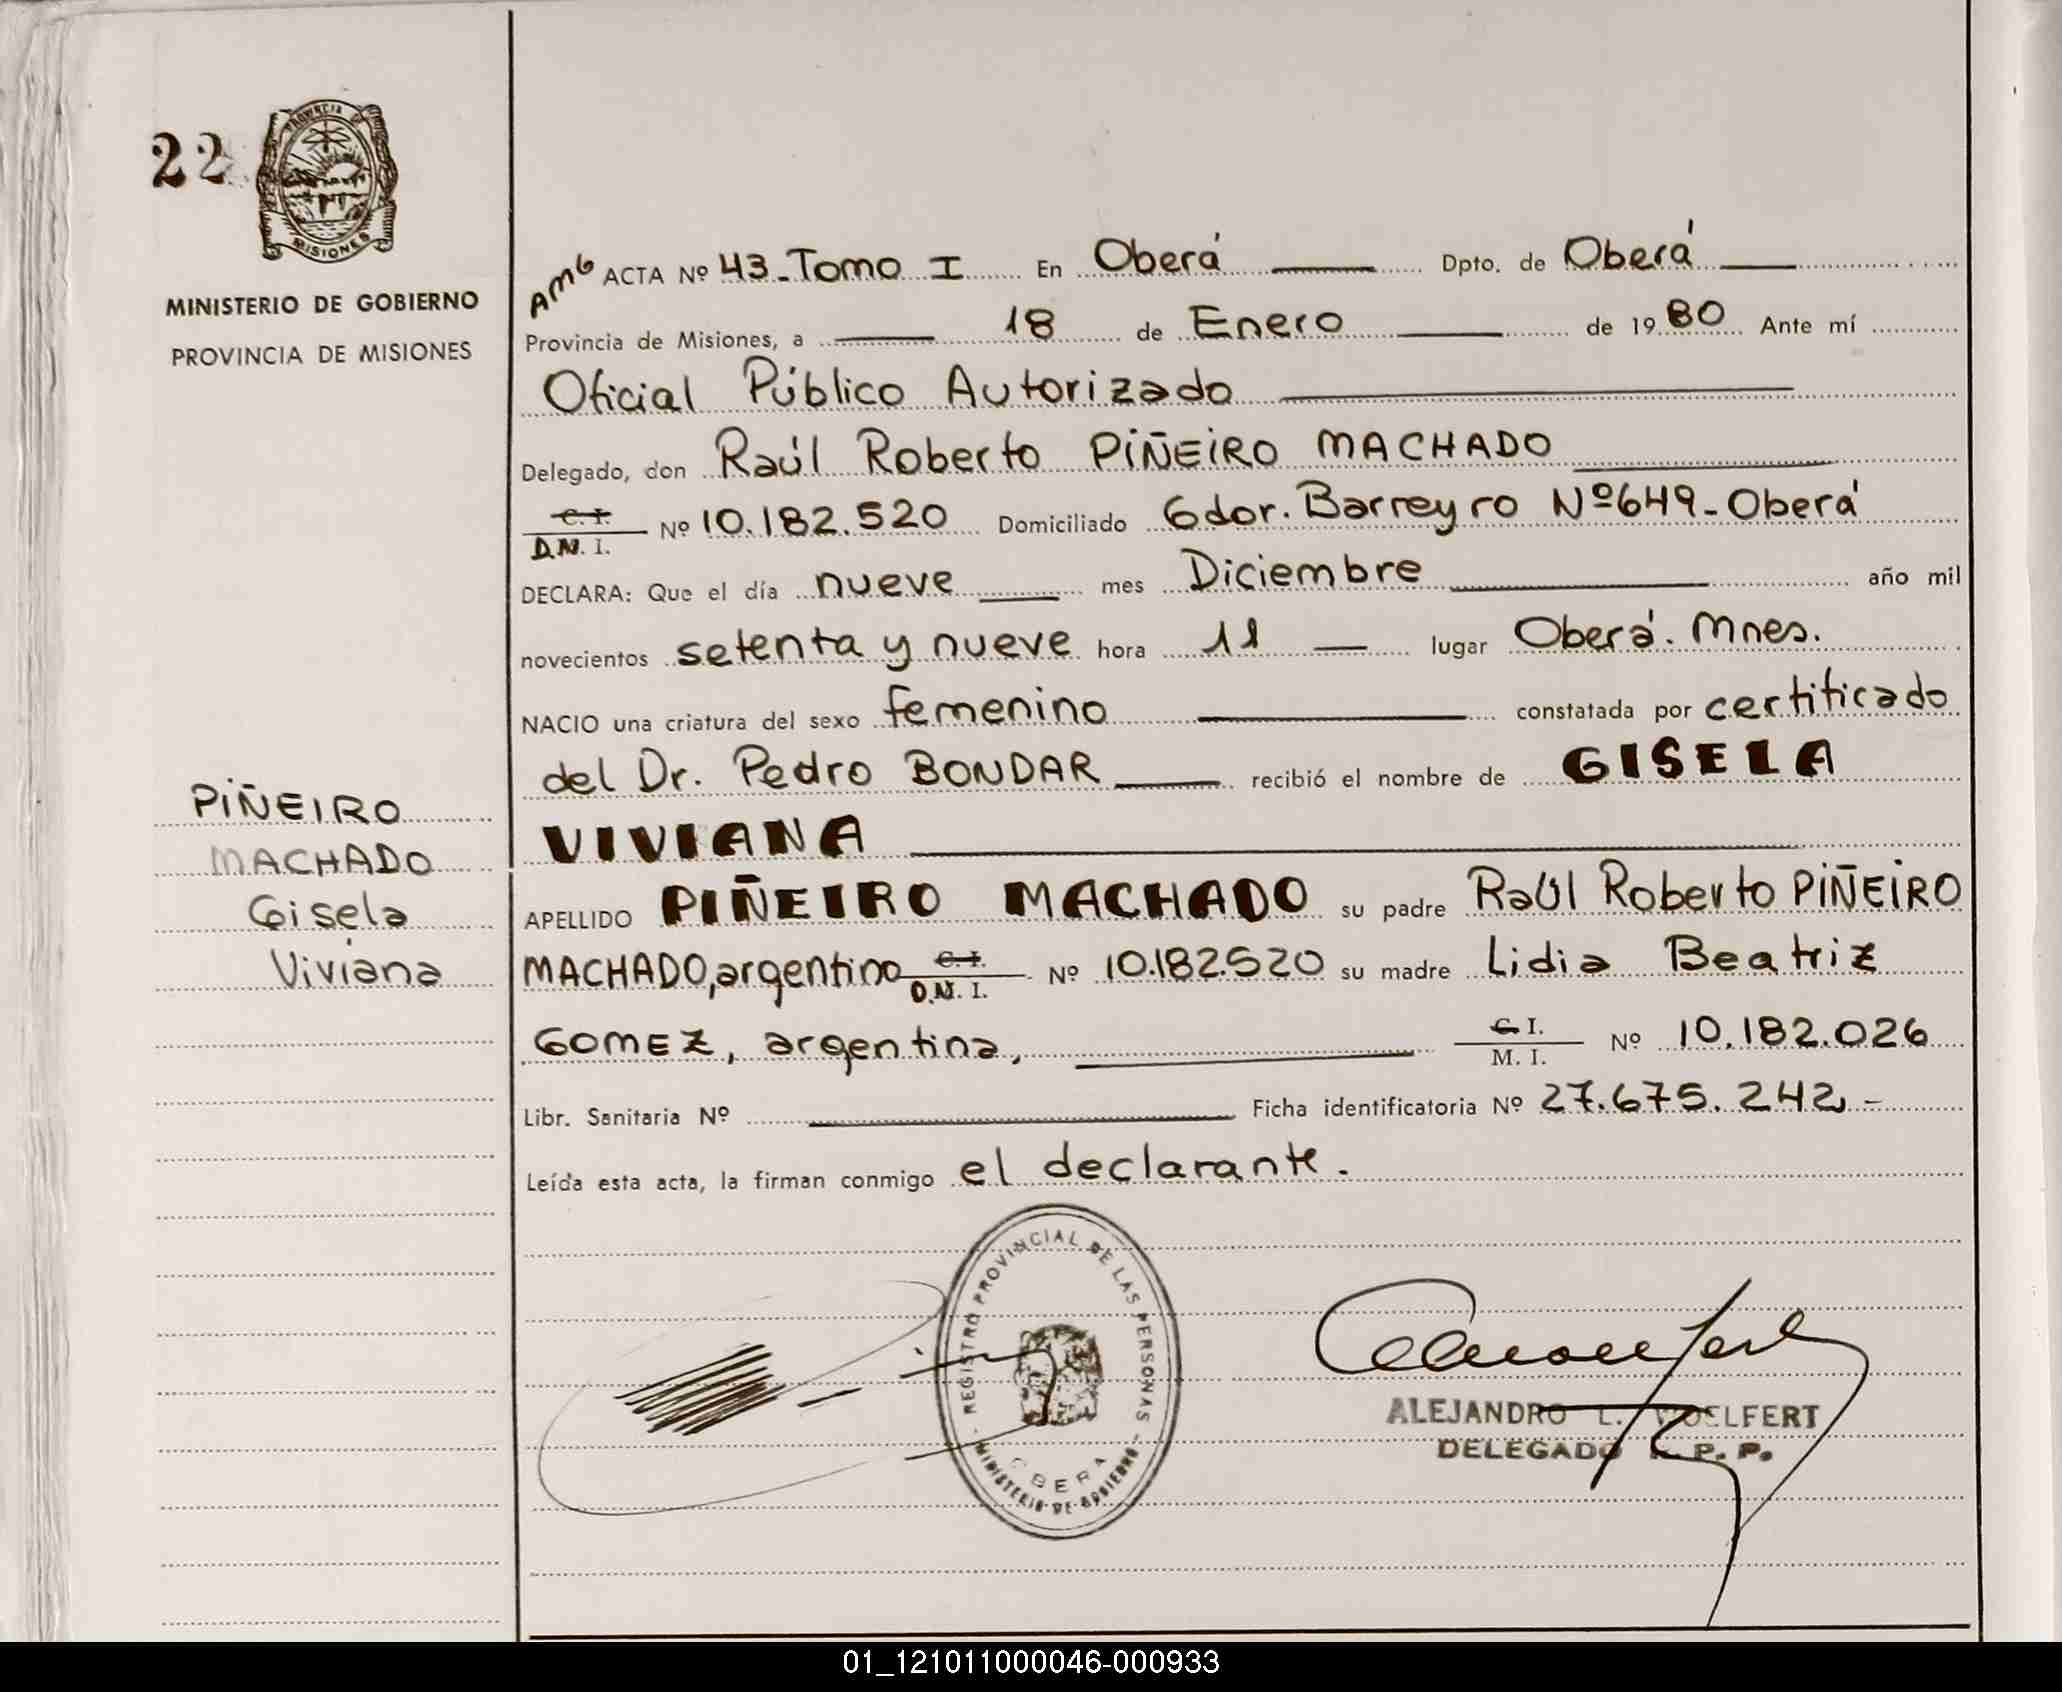 22
PROVINCIA DE
MISIONES
MINISTERIO DE GOBIERNO
PROVINCIA DE MISIONES
PIÑEIRO
MACHADO
Gisela
Viviana
AMG ACTA Nº 43-Tomo I En Oberá Dpto. de Oberá
Provincia de Misiones, a 18 de Enero de 1980 Ante mí
Oficial Público Autorizado
Delegado, don Raúl Roberto PIÑEIRO MACHADO
C. I.
D.N. I. Nº 10.182.520 Domiciliado Gdor. Barreyro Nº649-Oberá
DECLARA: Que el día nueve mes Diciembre año mil
novecientos setenta y nueve hora 11 lugar Oberá. Mnes.
NACIO una criatura del sexo femenino constatada por certificado
del Dr. Pedro BONDAR recibió el nombre de GISELA
VIVIANA
APELLIDO PIÑEIRO MACHADO su padre Raúl Roberto PIÑEIRO
MACHADO, argentino C. I. D.N. I. Nº 10.182.520 su madre Lidia Beatriz
GOMEZ, argentina, C. I. M. I. Nº 10.182.026
Libr. Sanitaria Nº Ficha identificatoria Nº 27.675.242,-
Leída esta acta, la firman conmigo el declarante.
REGISTRO PROVINCIAL DE LAS PERSONAS
OBERA
MINISTERIO DE GOBIERNO
ALEJANDRO L. WOELFERT
DELEGADO R. P. P.
01_121011000046-000933